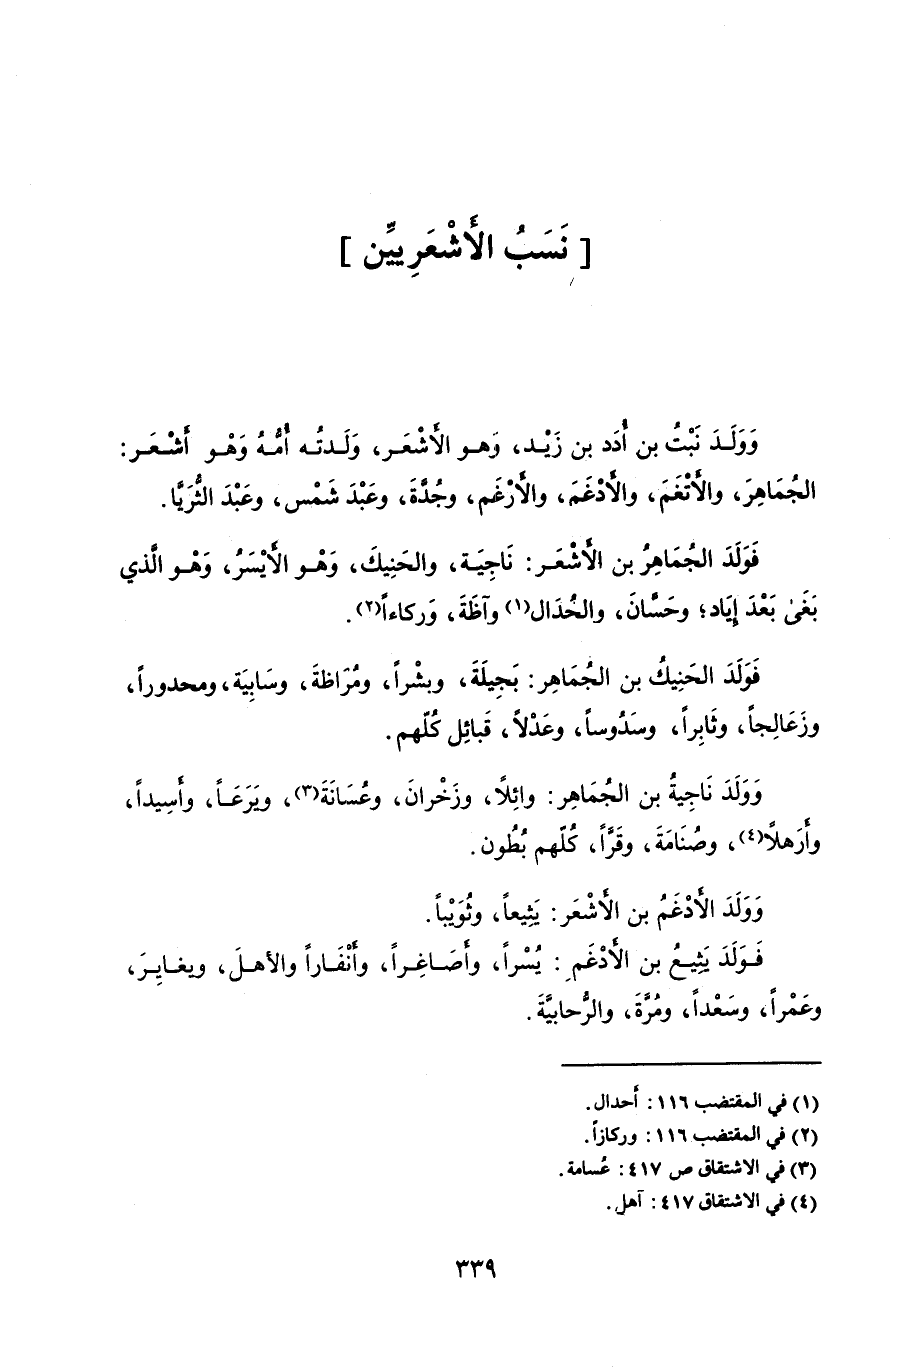 [ نَسَبُ الأَشْعَرِيِّين ]
وَوَلَـدَ نَبْتُ بن أُدَد بن زَيْـد، وَهـو الأَشْعَـر، وَلَـدتُـه أُمُّـهُ وَهْـو أَشْعَـر :
الجُمَاهِرَ، والأَتْغَمَ، والأَدْغَمَ، والأَرْغَم، وجُدَّةَ، وعَبْدَ شَمْس، وعَبْدَ الثُّرَيَّا.
فَوَلَدَ الجُمَاهِرُ بن الأَشْعَـر : نَاجِيَـة، والحَنِيكَ، وَهْـو الأَيْسَرُ، وَهْـو الَّذي
بَغَىٰ بَعْدَ إِيَاد؛ وحَسَّانَ، والخُدَال(١) وآظَةَ، وَركاءاً(٢).
فَوَلَدَ الحَنِيكُ بن الجُمَاهِر : بَجِيلَةَ، وبشْراً، ومُرَاظةَ، وسَابِيَة، ومحدوراً،
وزَعَالِجاً، وثَابِراً، وسَدُوساً، وعَدْلاً، قَبائِل كُلّهم.
وَوَلَدَ نَاجِيةُ بن الجُمَاهِر : وائِلًا، وزَخْرانَ، وعُسَانَةَ(٣)، ويَرَعَـاً، وأَسِيداً،
وأَرَهلًا(٤)، وصُنَامَةَ، وقَرَّاً، كُلّهم بُطُون.
وَوَلَدَ الأَدْغَمُ بن الأَشْعَر : يَثِيعاً، وثُوَيْباً.
فَـوَلَدَ يَثِيـعُ بن الأَدْغَمِ : يُسْراً، وأَصَـاغِـراً، وأَنْفَـاراً والأهـلَ، ويغـايِـرَ،
وعَمْراً، وسَعْداً، ومُرَّةَ، والرُّحابيَّةَ.
(١) في المقتضب ١١٦ : أحدال.
(٢) في المقتضب ١١٦ : وركازاً.
(٣) في الاشتقاق ص ٤١٧ : عُسامة.
(٤) في الاشتقاق ٤١٧ : آهل.
٣٣٩